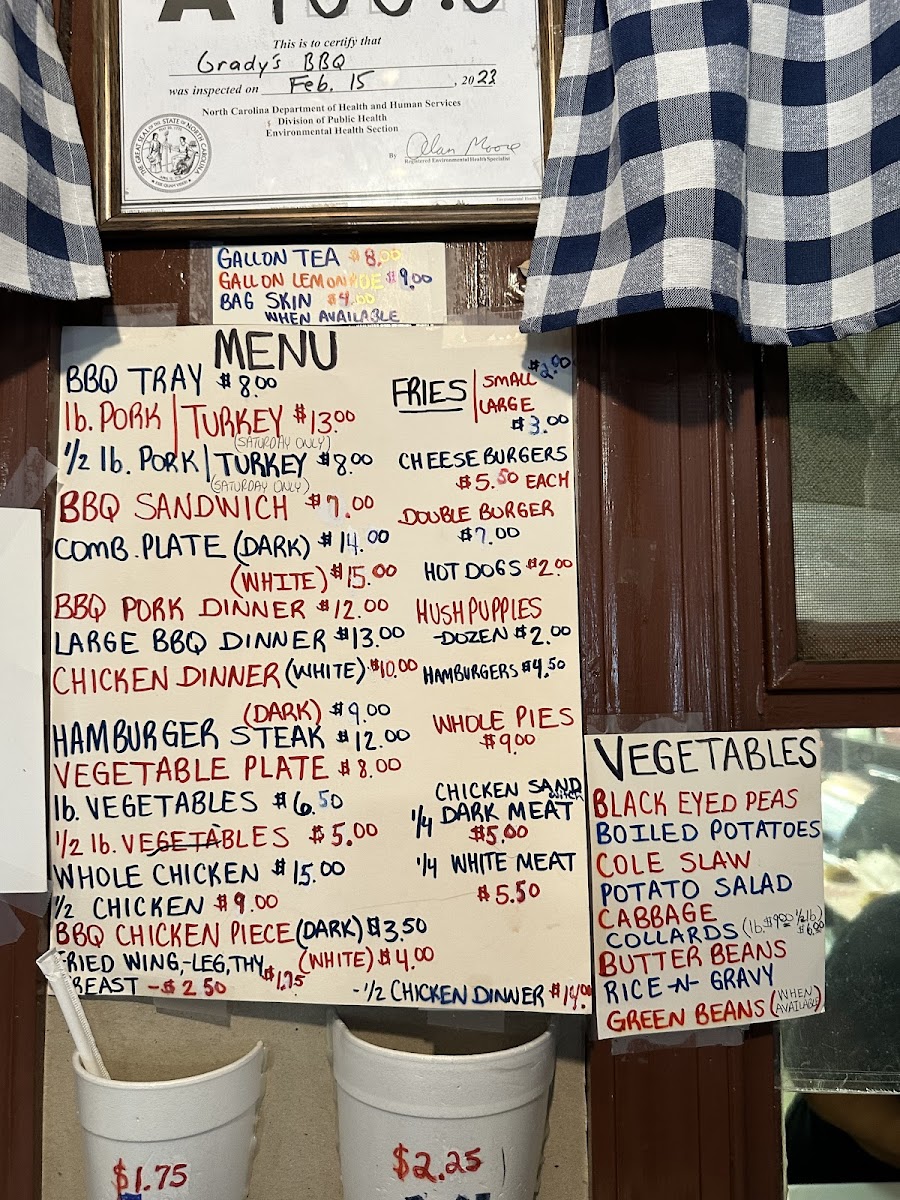 A 100.0
This is to certify that
Grady's BBQ
was inspected on Feb. 15, 2023
North Carolina Department of Health and Human Services
Division of Public Health
Environmental Health Section
By Alan Moore
Registered Environmental Health Specialist
THE GREAT SEAL OF THE STATE OF NORTH CAROLINA
GALLON TEA $8.00
GALLON LEMONADE $9.00
BAG SKIN $4.00
WHEN AVAILABLE
MENU
BBQ TRAY $8.00
lb. PORK | TURKEY $13.00
(SATURDAY ONLY)
1/2 lb. PORK | TURKEY $8.00
(SATURDAY ONLY)
BBQ SANDWICH $7.00
COMB. PLATE (DARK) $14.00
(WHITE) $15.00
BBQ PORK DINNER $12.00
LARGE BBQ DINNER $13.00
CHICKEN DINNER (WHITE) $10.00
(DARK) $9.00
HAMBURGER STEAK $12.00
VEGETABLE PLATE $8.00
lb. VEGETABLES $6.50
1/2 lb. VEGETABLES $5.00
WHOLE CHICKEN $15.00
1/2 CHICKEN $9.00
BBQ CHICKEN PIECE (DARK) $3.50
(WHITE) $4.00
FRIED WING,-LEG,THY $1.75
BREAST -$2.50
$2.00
FRIES | SMALL
LARGE
$3.00
CHEESEBURGERS
$5.50 EACH
DOUBLE BURGER
$7.00
HOT DOGS $2.00
HUSHPUPPIES
-DOZEN $2.00
HAMBURGERS $4.50
WHOLE PIES
$9.00
CHICKEN SANDWITCH
1/4 DARK MEAT
$5.00
1/4 WHITE MEAT
$5.50
-1/2 CHICKEN DINNER $14.00
VEGETABLES
BLACK EYED PEAS
BOILED POTATOES
COLE SLAW
POTATO SALAD
CABBAGE
COLLARDS (lb. $9.00 1/2 lb) $6.00
BUTTER BEANS
RICE -N- GRAVY
GREEN BEANS (WHEN AVAILABLE)
$1.75
$2.25